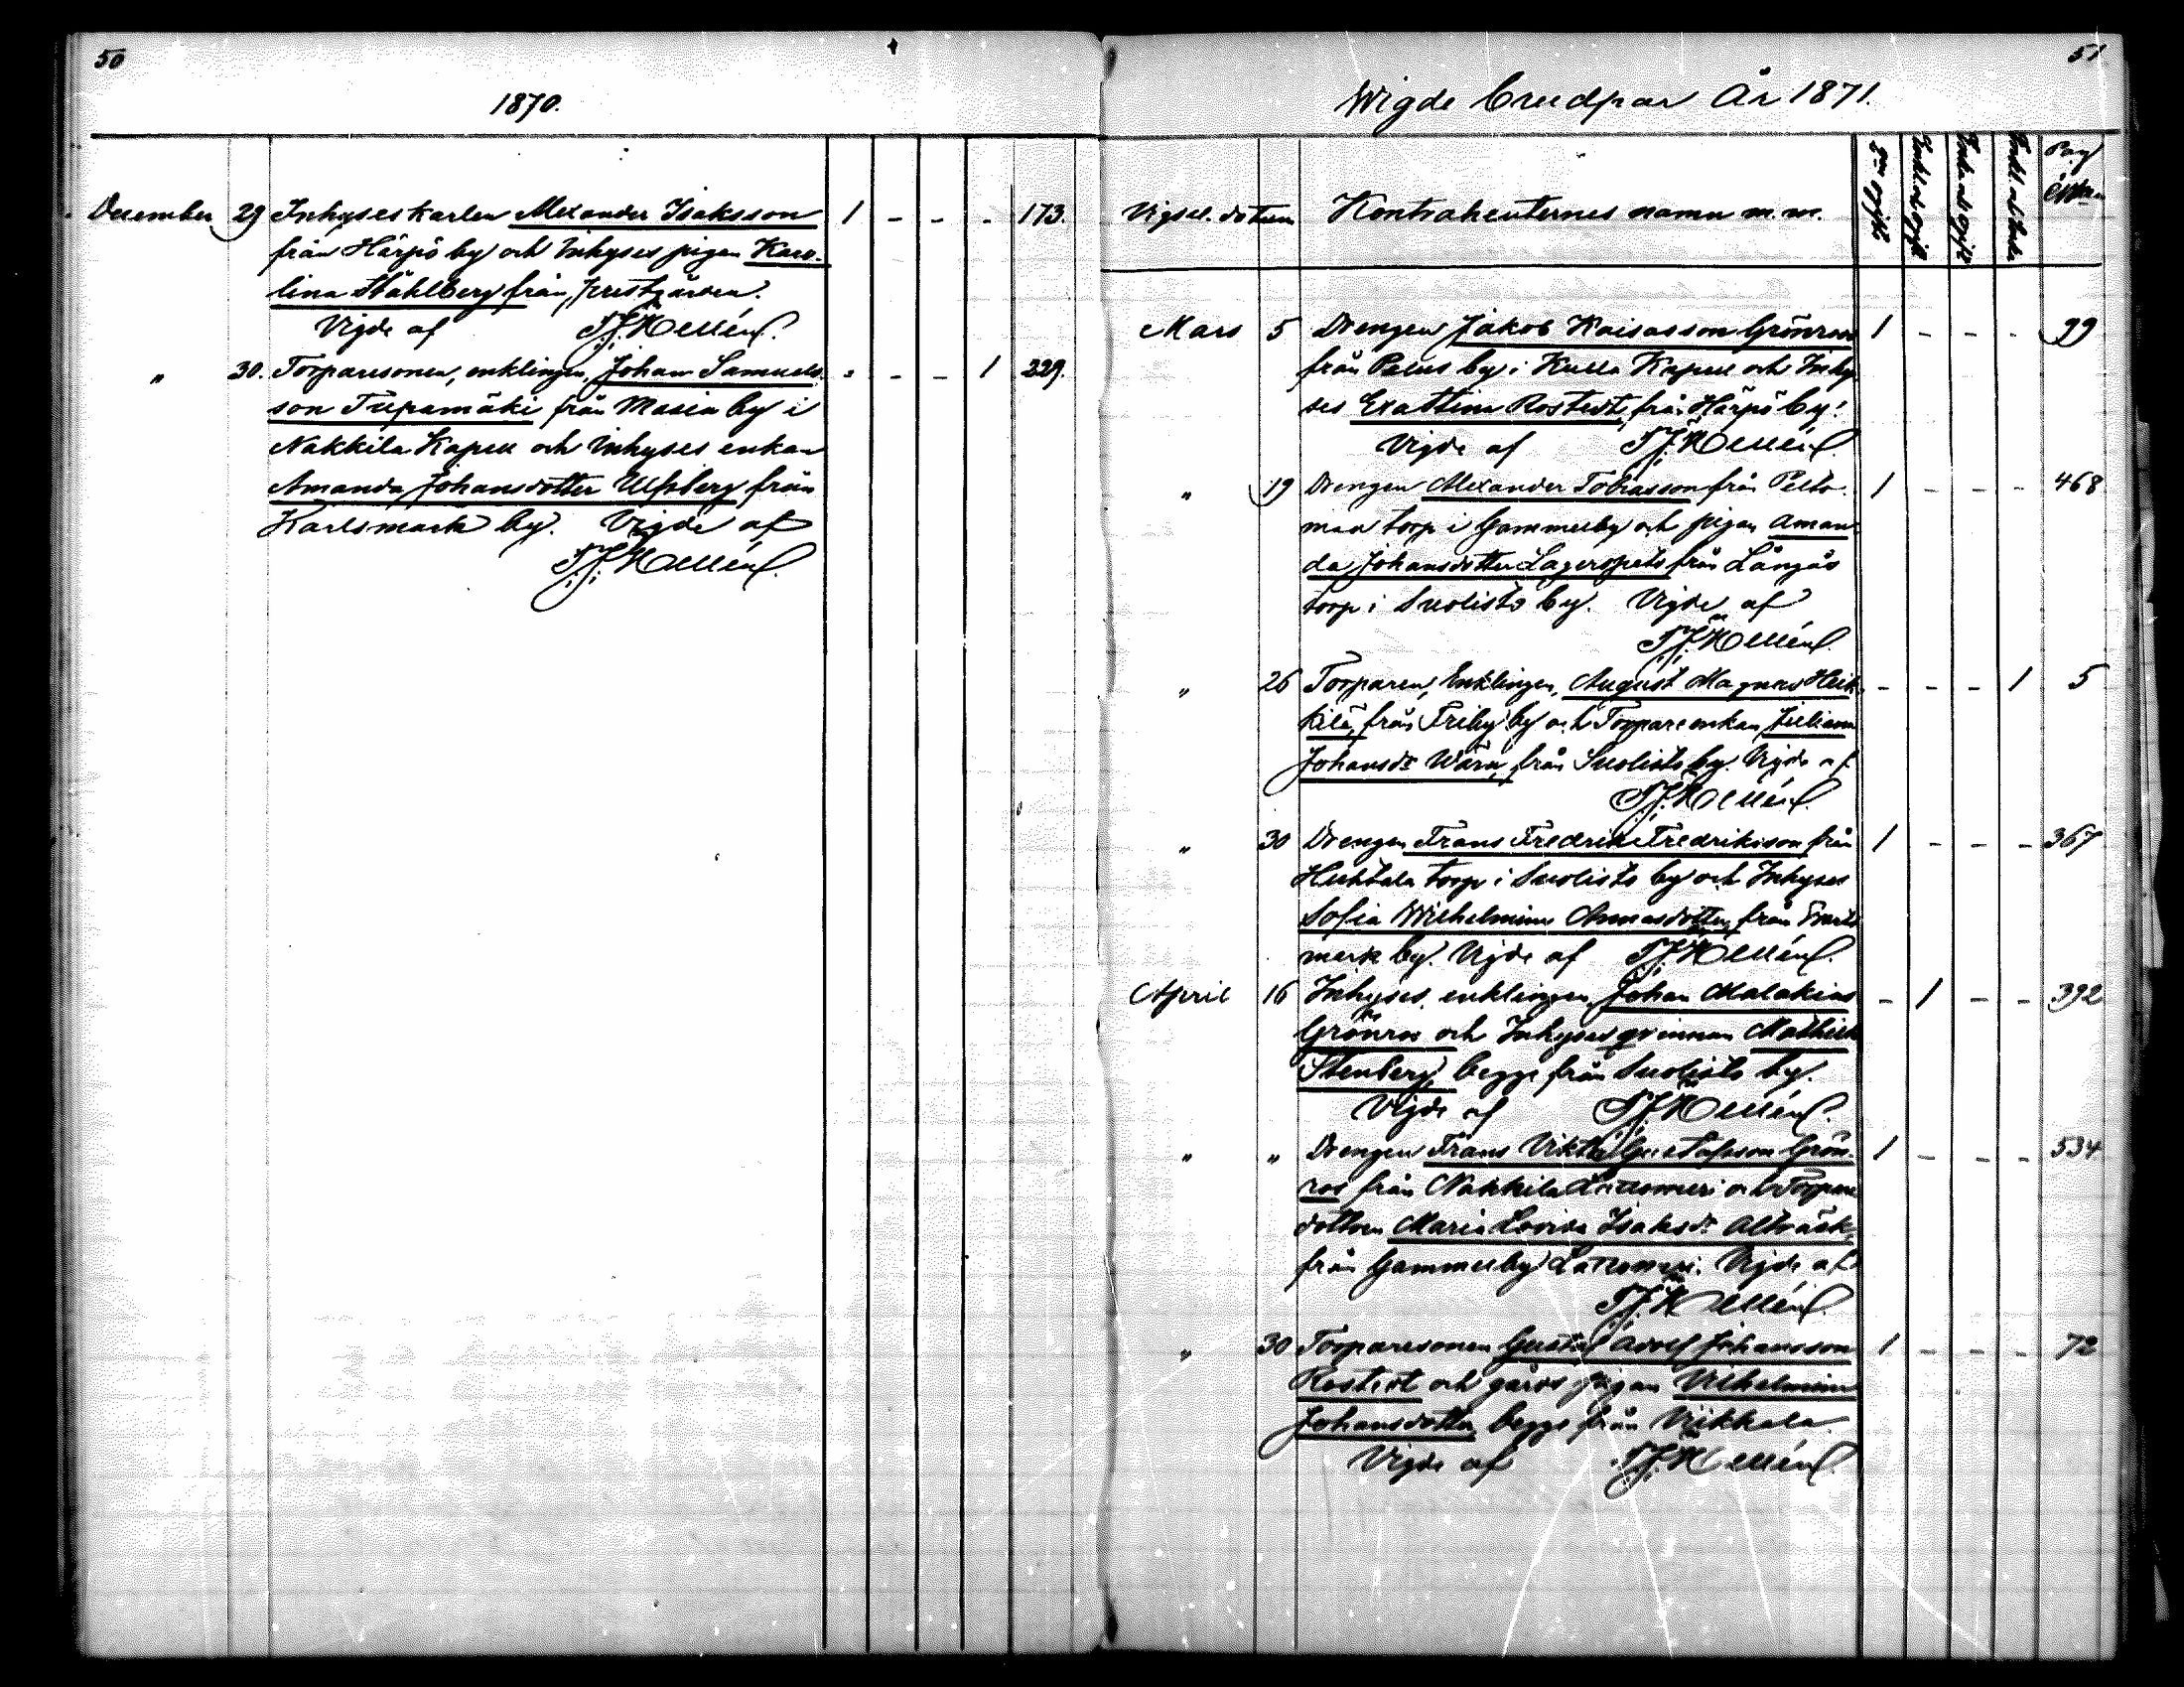 50
1870.
December 29 Inhyseskarlen Alexander Isaksson 1 - - - 173.
från Härpö by och Inhyses pigan Karo-
lina Ståhlberg från prestgården.
Vigde af
" 30. Torparesonen, enklingen, Johan Samuels- - - - 1 229.
son Trepamäki från Masia by i
Nakkila Kapell och Inhyses enkan
Amanda Johansdotter Ulfsberg från
Karlsmark by. Vigde af
51
Wigde brudpar År 1871.
Vigsel. datum Kontrahenternes namn m.m.
Mars 5 Drengen Jakob Kaisasson Grönroos 1 - - - 99
från Palus by i Kulla Kapell och Inhy-
ses Eva Stina Rostedt, från Härpö by.
Vigde af
" 19 Drengen Alexander Tobiasson från Pelto- 1 - - - 468
maa torp i Gammelby och pigan Aman-
da Johansdotter Lagerspets från Långås
torp i Suolisto by. Vigde af
" 26 Torparen, Enklingen, August Magnus Heik- - - - 1 5
kilä, från Friby by och Torpare enkan Juliana
Johansdr Wärn, från Suolisto by. Vigde af
" 30 Drengen Frans Fredrik Fredriksson från 1 - - - 367
Huhtala torp i Suolisto by och Inhyses
Sofia Wilhelmina Annasdotter, från
mark by. Vigde af
April 16 Inhyses enklingen Johan Malakias - 1 - - 392
Grönros och Inhyses qvinnan Mathilda
Stenberg, begge från Suolisto by.
Vigde af
" " Drengen Frans Viktor Gustafsson Grön- 1 - - - 534
ros från Nakkila Lattomeri och Torpare
dottern Maria Lovisa Isaksdr Altbäck,
från Gammelby Lattomeri. Vigde af
" 30 Torparesonen Gustaf Adolf Johansson 1 - - - 72
Rostedt och gårds pigan Vilhelmina
Johansdotter, begge från Viikkala.
Vigde af